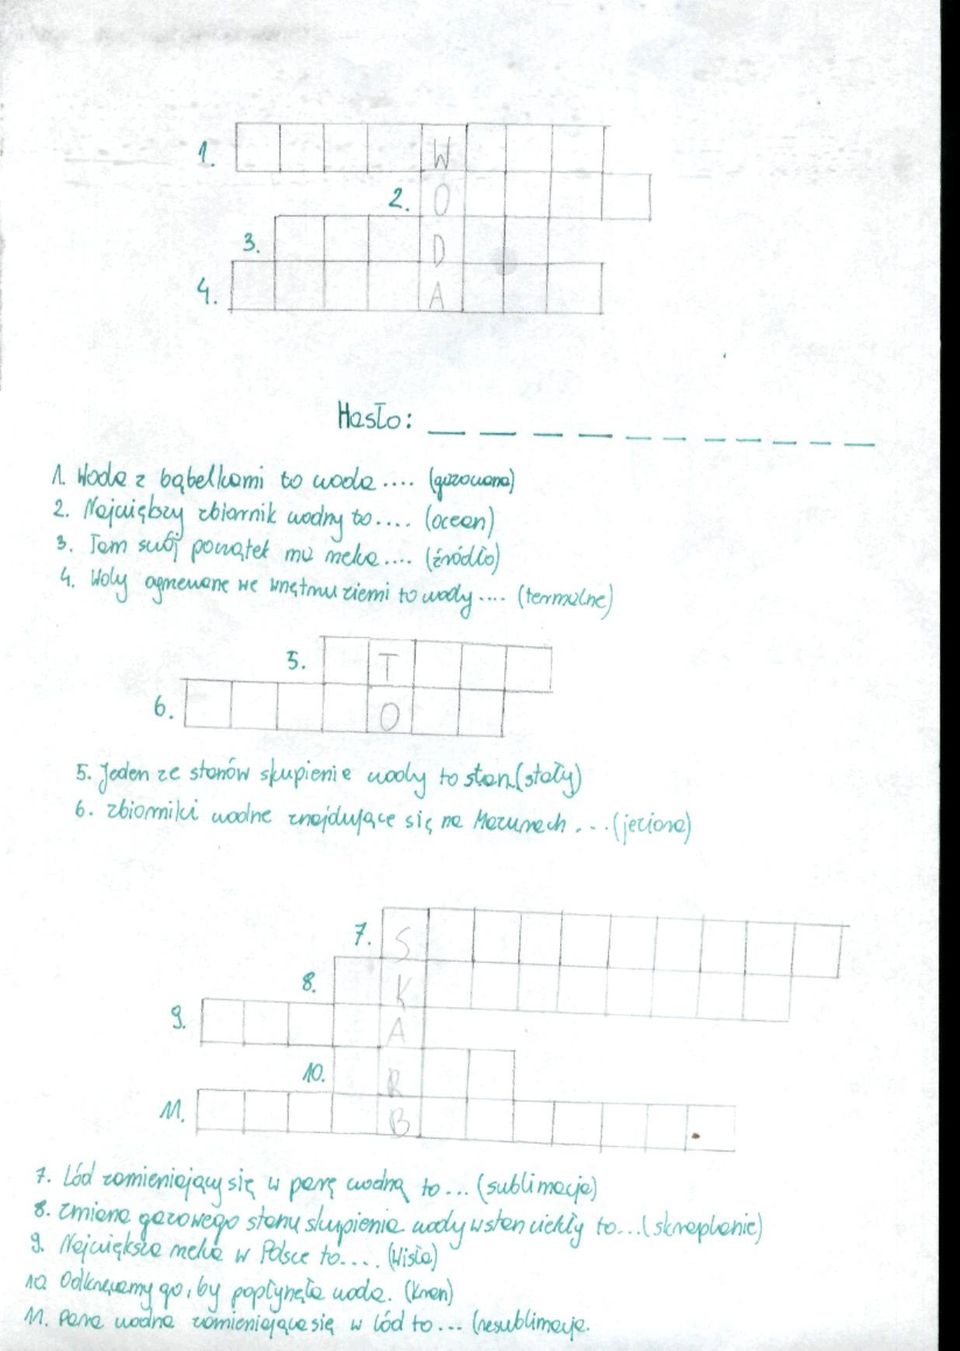 1. W
2. O
3. D
4. A
Hasło: _ _ _ _ _ _ _ _ _ _
1. Woda z bąbelkami to woda .... (gazowana)
2. Największy zbiornik wodny to .... (ocean)
3. Tam swój początek ma rzeka .... (źródło)
4. Wody ogrzewane we wnętrzu ziemi to wody .... (termalne)
5. T
6. O
5. Jeden ze stanów skupienia wody to stan (stały)
6. zbiorniki wodne znajdujące się na Mazurach ... (jeziora)
7. S
8. K
9. A
10. R
11. B
7. Lód zamieniający się w parę wodną to ... (sublimacja)
8. zmiana gazowego stanu skupienia wody w stan ciekły to ... (skraplanie)
9. Największa rzeka w Polsce to .... (Wisła)
10. Odkręcamy go, by popłynęła woda. (kran)
11. Para wodna zamieniająca się w lód to ... (resublimacja.